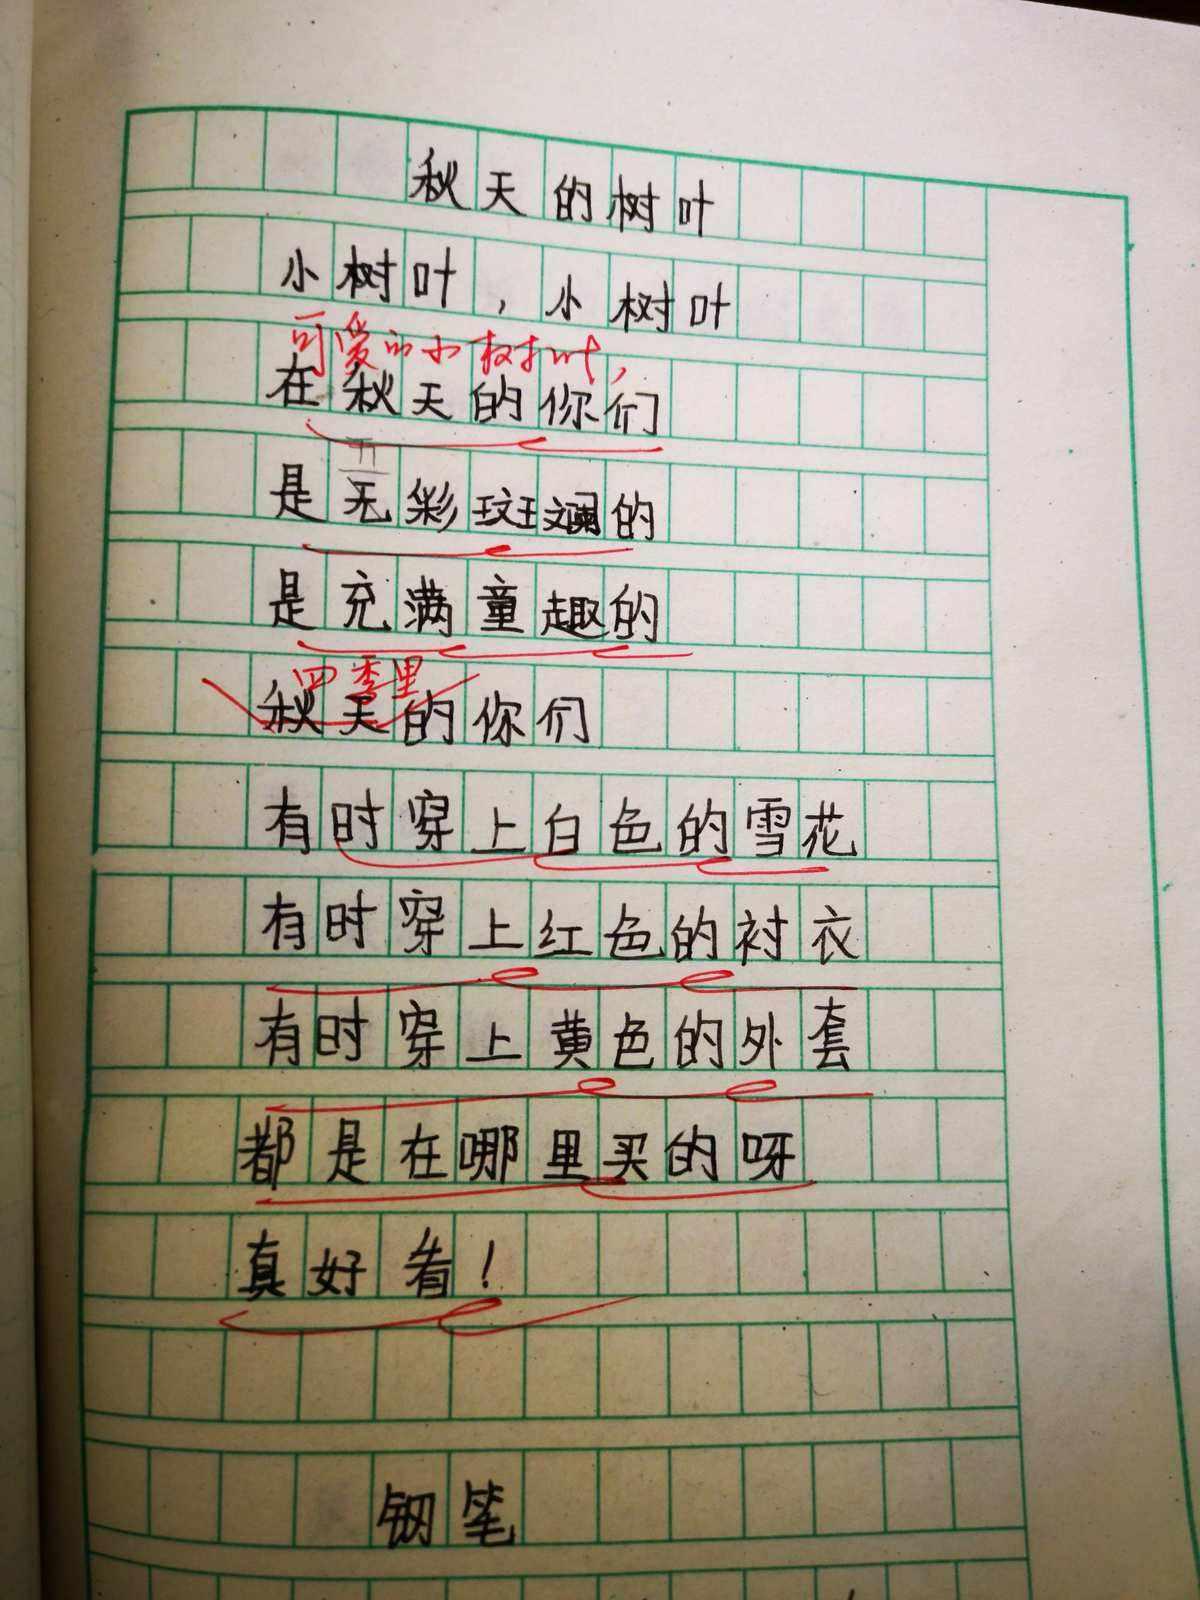 秋天的树叶
小树叶，小树叶
可爱的小树叶，
在秋天的你们
是五彩斑斓的
是充满童趣的
四季里
秋天的你们
有时穿上白色的雪花
有时穿上红色的衬衣
有时穿上黄色的外套
都是在哪里买的呀
真好看！
钢笔